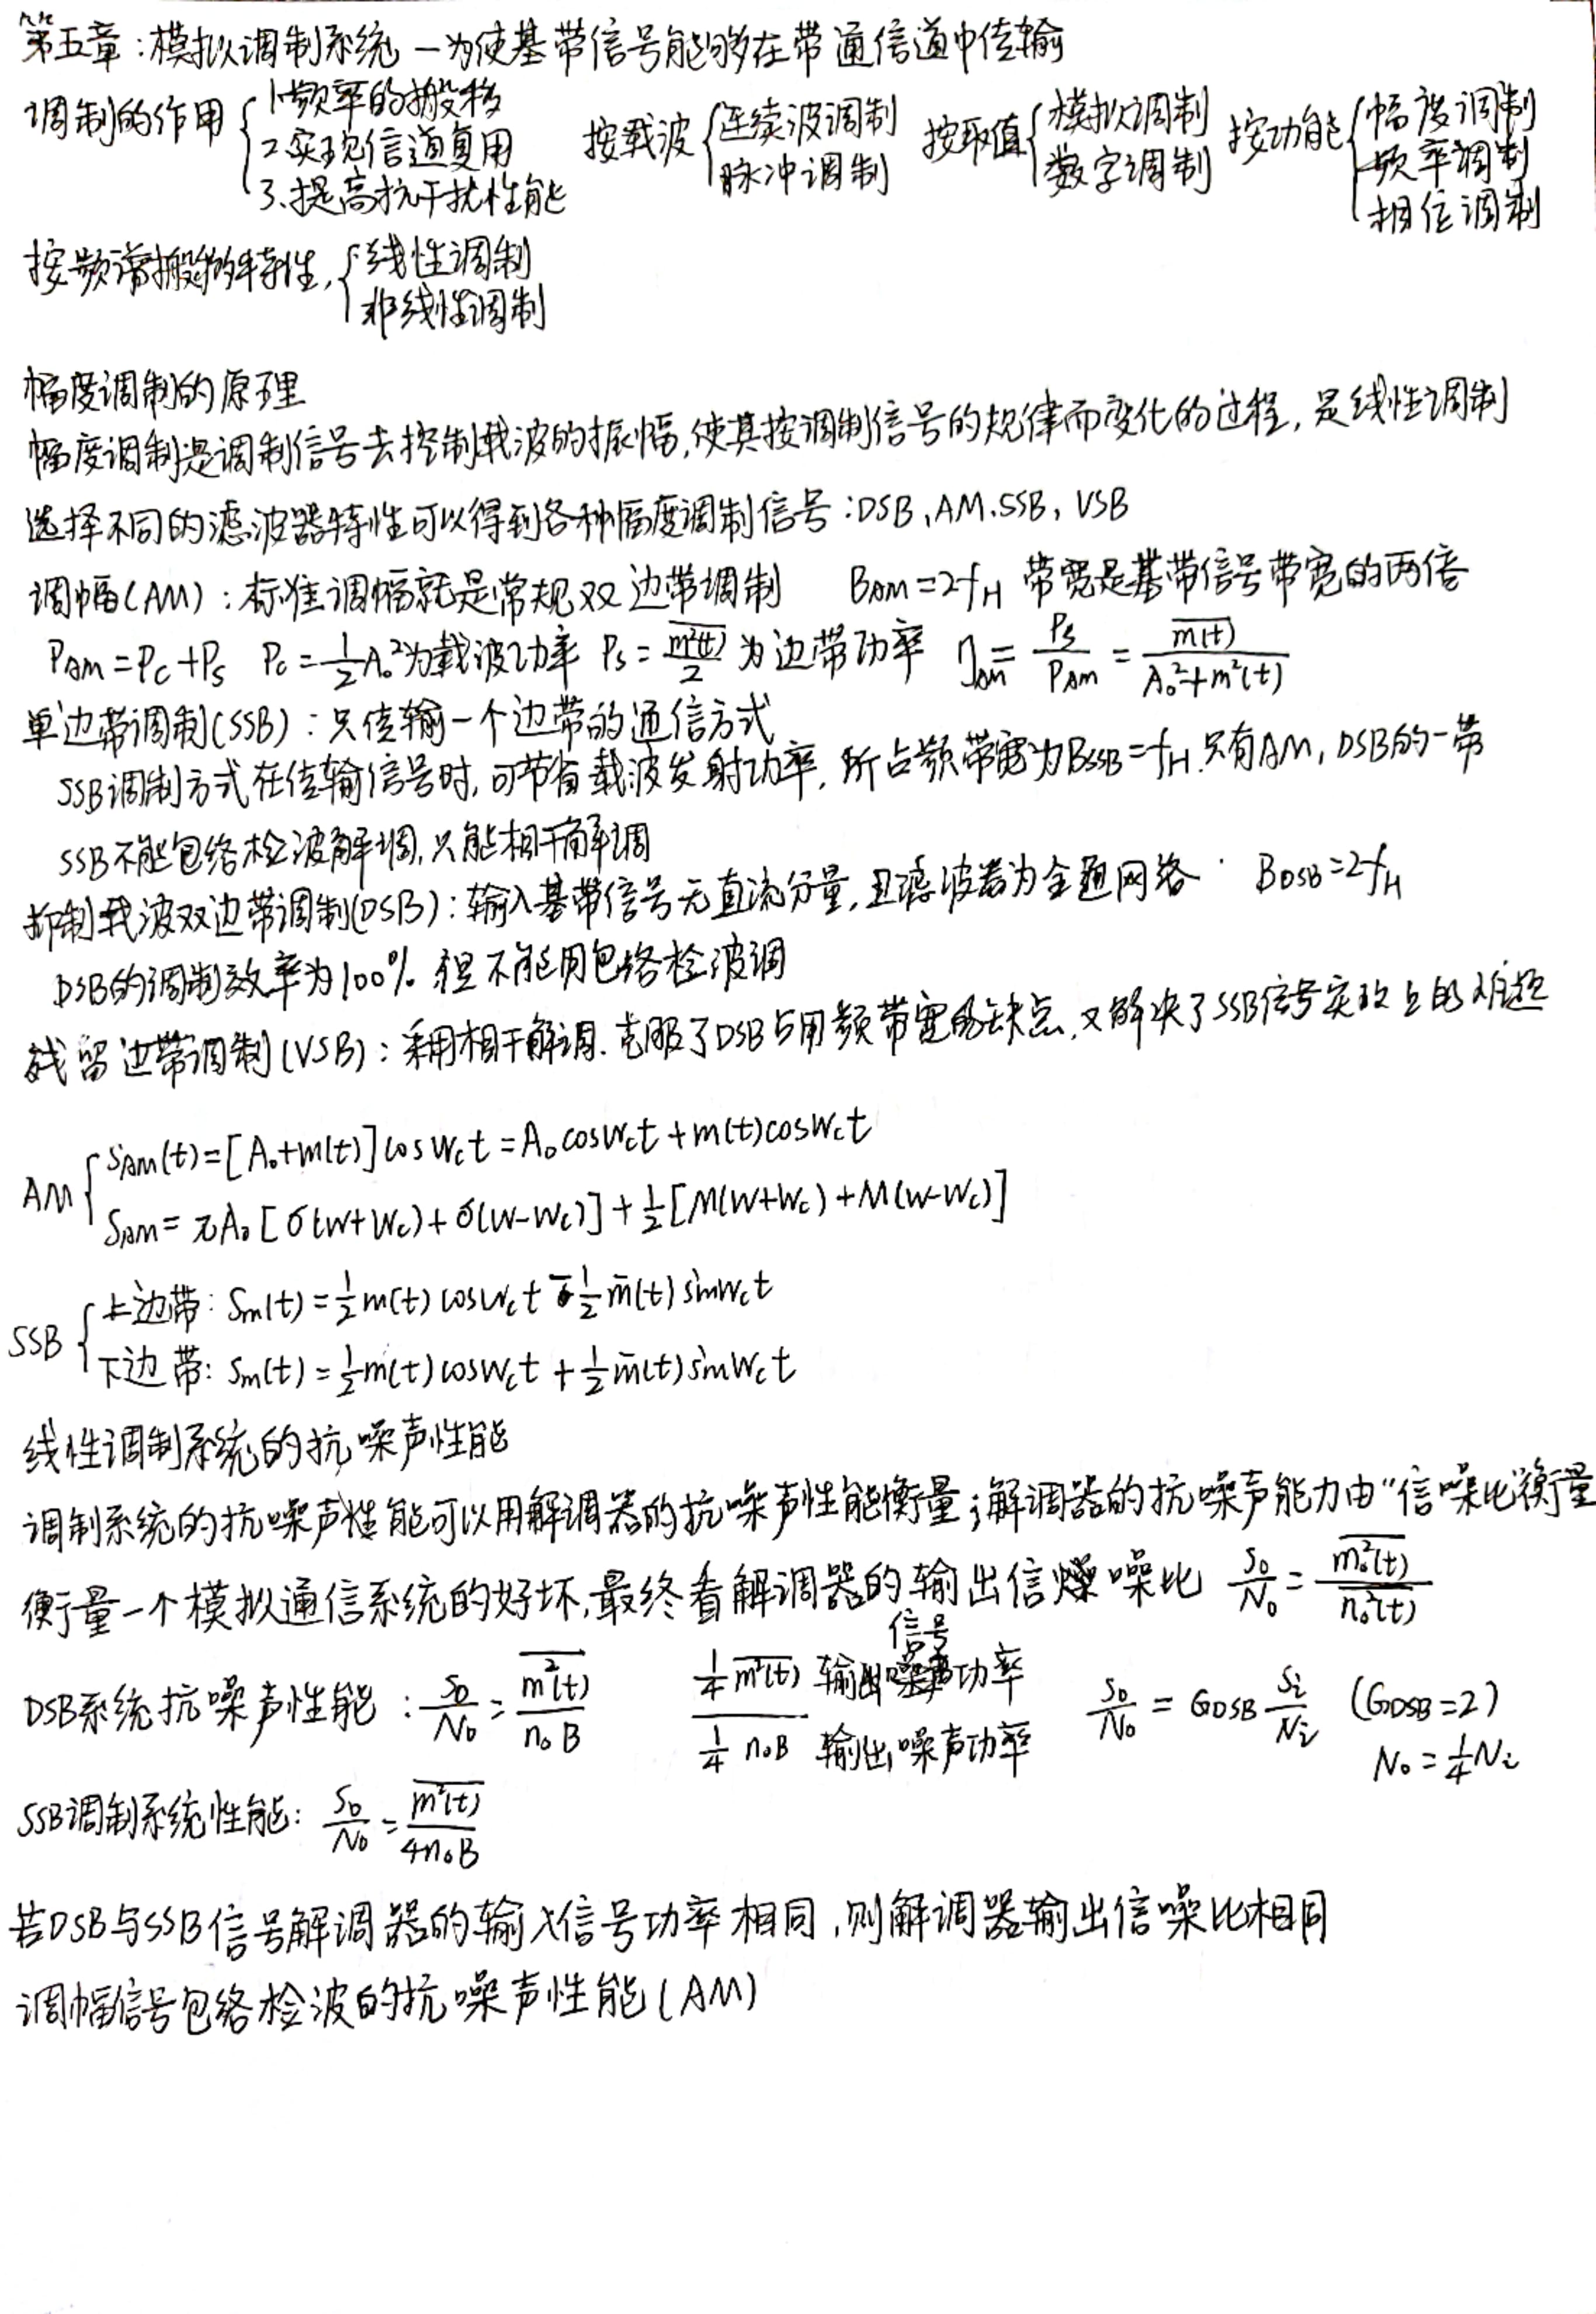 第五章：模拟调制系统 —为使基带信号能够在带通信道中传输
调制的作用 { 1.频率的搬移
2.实现信道复用
3.提高抗干扰性能
按载波 { 连续波调制
脉冲调制
按取值 { 模拟调制
数字调制
按功能 { 幅度调制
频率调制
相位调制
按频谱搬移特性, { 线性调制
非线性调制
幅度调制的原理
幅度调制是调制信号去控制载波的振幅,使其按调制信号的规律而变化的过程, 是线性调制
选择不同的滤波器特性可以得到各种幅度调制信号:DSB、AM、SSB, VSB
调幅(AM)：标准调幅就是常规双边带调制 B_AM=2f_H 带宽是基带信号带宽的两倍
P_AM=P_C+P_S P_C=1/2 A₀²为载波功率 P_S= \overline{m²(t)}/2 为边带功率 η_AM= P_S/P_AM = \overline{m(t)}/(A₀²+m²(t))
单边带调制(SSB)：只传输一个边带的通信方式
SSB调制方式在传输信号时,可节省载波发射功率, 所占频带宽为B_SSB=f_H.只有AM, DSB的一带
SSB不能包络检波解调,只能相干解调
抑制载波双边带调制(DSB):输入基带信号无直流分量,且滤波器为全通网络. B_DSB=2f_H
DSB的调制效率为100% 但不能用包络检波调
残留边带调制(VSB)：采用相干解调.克服了DSB占用频带宽的缺点,又解决了SSB信号实改上的难题
AM { S_AM(t)=[A₀+m(t)]cosW_ct=A₀cosW_ct+m(t)cosW_ct
S_AM=πA₀[σ(W+W_c)+σ(W-W_c)]+1/2[M(W+W_c)+M(W-W_c)]
SSB { 上边带: S_m(t)=1/2 m(t)cosW_ct - 1/2 m̄(t)sinW_ct
下边带: S_m(t)=1/2 m(t)cosW_ct + 1/2 m̄(t)sinW_ct
线性调制系统的抗噪声性能
调制系统的抗噪声性能可以用解调器的抗噪声性能衡量;解调器的抗噪声能力由“信噪比”衡量
衡量一个模拟通信系统的好坏,最终看解调器的输出信噪比 S₀/N₀ = \overline{m₀²(t)}/\overline{n₀²(t)}
DSB系统抗噪声性能：S₀/N₀ = \overline{m²(t)}/n₀B 1/4 \overline{m²(t)} 输出信号功率 / 1/4 n₀B 输出噪声功率 S₀/N₀ = G_DSB S_i/N_i (G_DSB=2)
N₀=1/4 N_i
SSB调制系统性能: S₀/N₀ = \overline{m²(t)}/4n₀B
若DSB与SSB信号解调器的输入信号功率相同,则解调器输出信噪比相同
调幅信号包络检波的抗噪声性能(AM)